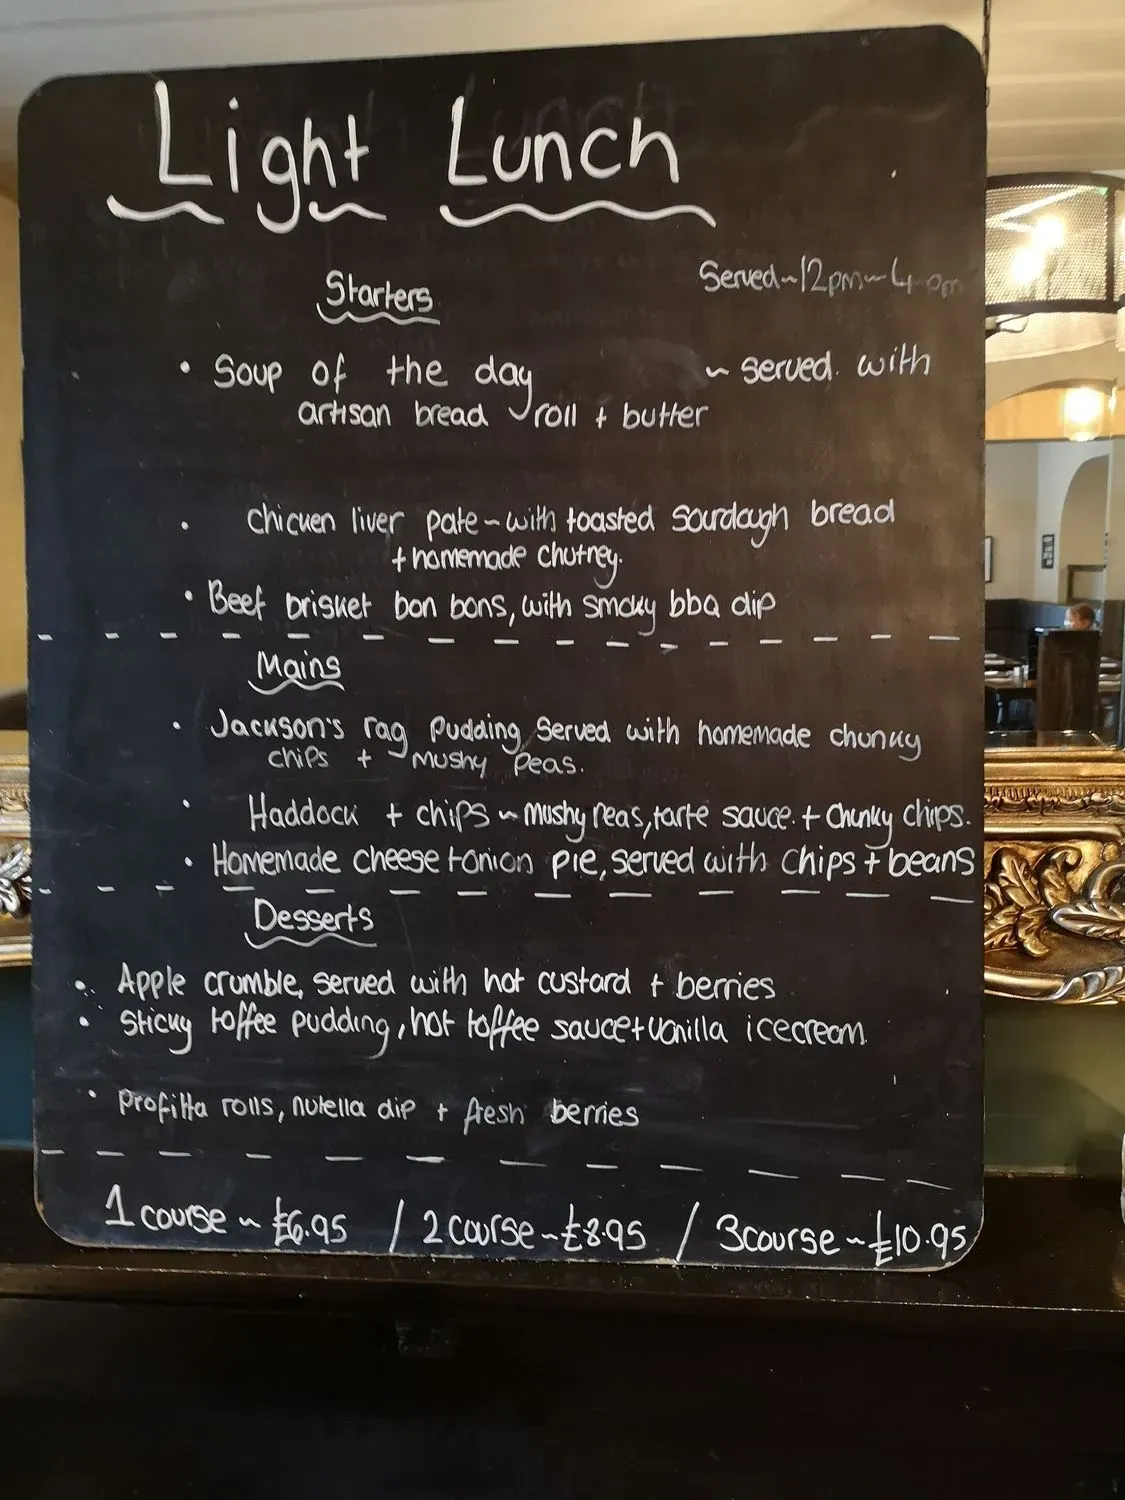 Light Lunch
Served~12pm~4pm
Starters
• Soup of the day ~ served with
artisan bread roll + butter
• Chicken liver pate~with toasted sourdough bread
+ homemade chutney.
• Beef brisket bon bons, with smoky bbq dip
Mains
• Jackson's rag pudding served with homemade chunky
chips + mushy peas.
• Haddock + chips ~ mushy peas, tarte sauce + chunky chips.
• Homemade cheese + onion pie, served with chips + beans
Desserts
• Apple crumble, served with hot custard + berries
• Sticky toffee pudding, hot toffee sauce + vanilla icecream
• Profitta rolls, nutella dip + fresh berries
1 course ~ £6.95 / 2 course ~ £8.95 / 3 course ~ £10.95